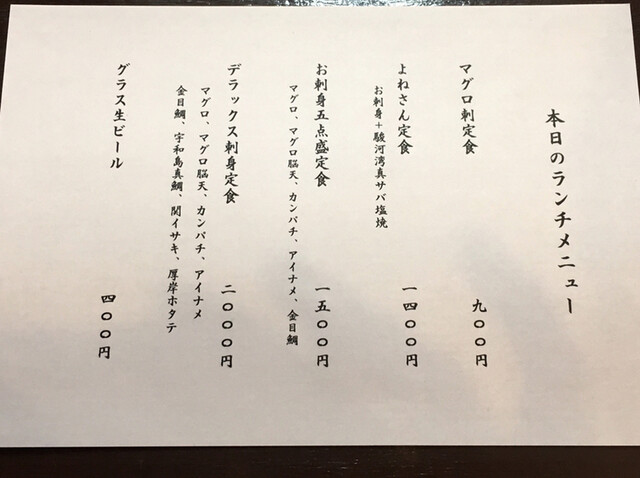 本日のランチメニュー
マグロ刺定食　九〇〇円
よねさん定食　一四〇〇円
お刺身＋駿河湾真サバ塩焼
お刺身五点盛定食　一五〇〇円
マグロ、マグロ脳天、カンパチ、アイナメ、金目鯛
デラックス刺身定食　二〇〇〇円
マグロ、マグロ脳天、カンパチ、アイナメ
金目鯛、宇和島真鯛、関イサキ、厚岸ホタテ
グラス生ビール　四〇〇円